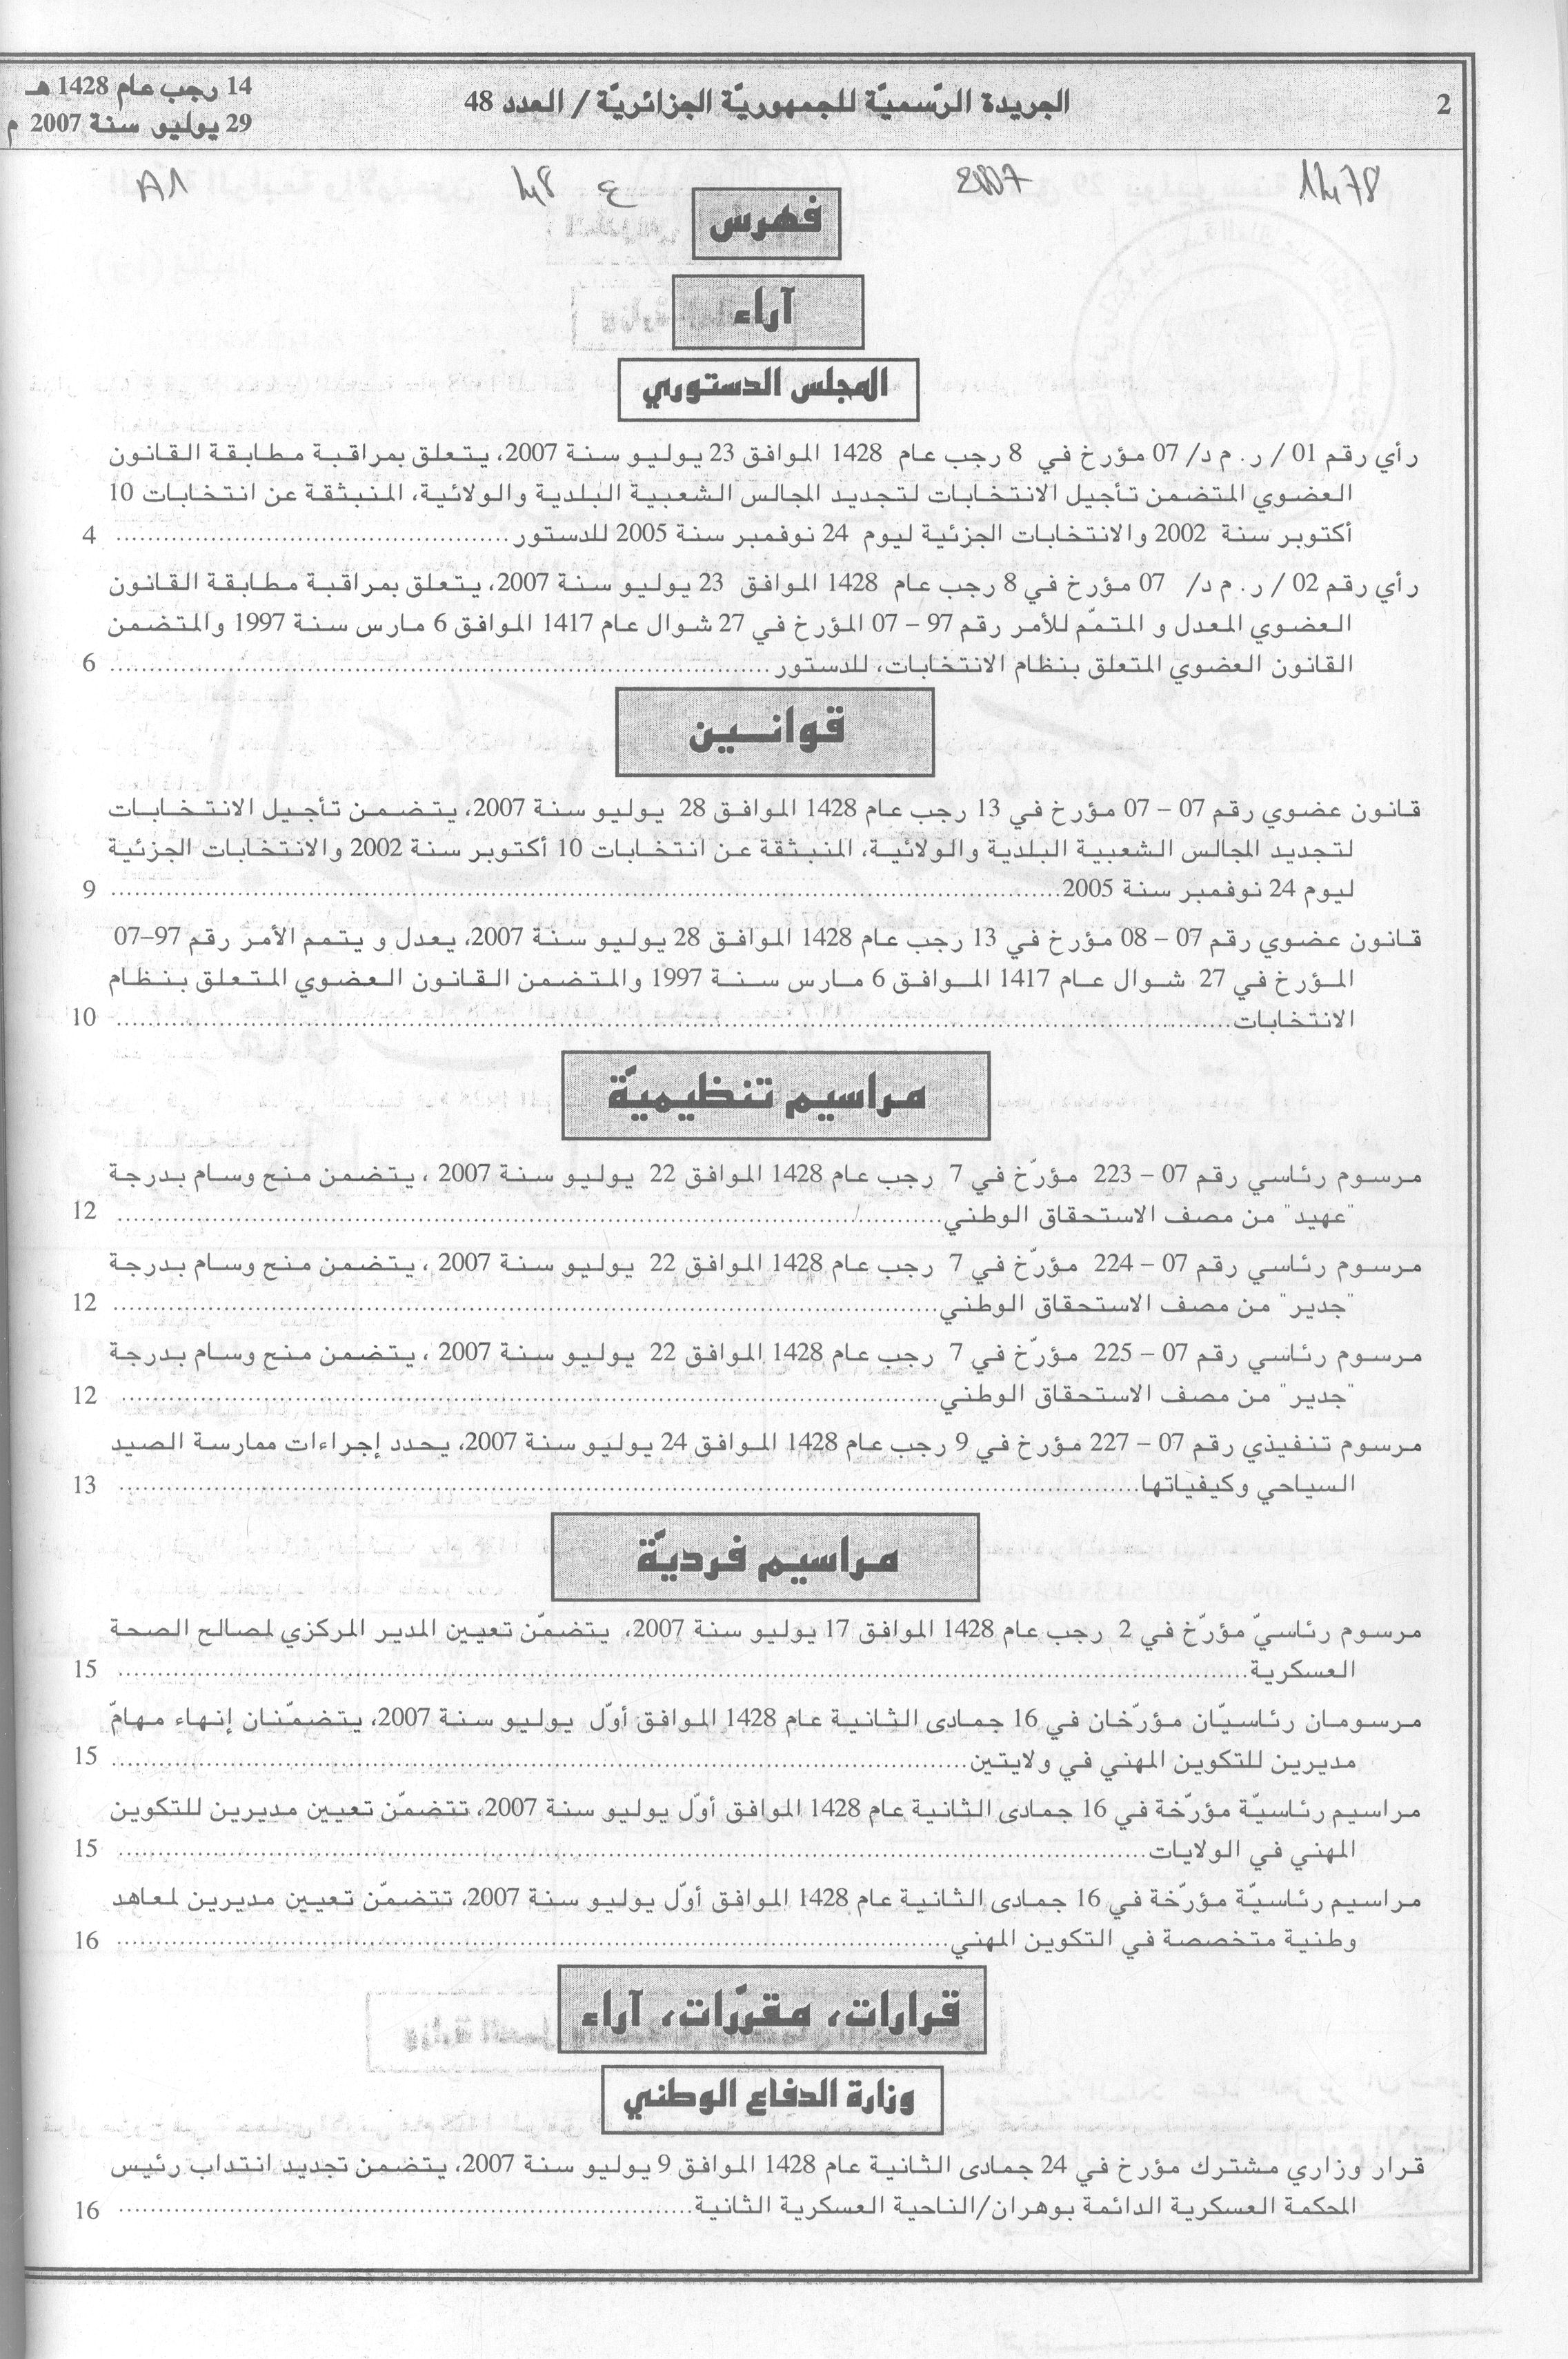 2
الجريدة الرّسميّة للجمهوريّة الجزائريّة / العدد 48
14 رجب عام 1428 هـ
29 يوليو سنة 2007 م
1478
2007
ع 48
A1
فهرس
آراء
المجلس الدستوري
رأي رقم 01 / ر. م د/ 07 مؤرخ في 8 رجب عام 1428 الموافق 23 يوليو سنة 2007، يتعلق بمراقبة مطابقة القانون
العضوي المتضمن تأجيل الانتخابات لتجديد المجالس الشعبية البلدية والولائية، المنبثقة عن انتخابات 10
أكتوبر سنة 2002 والانتخابات الجزئية ليوم 24 نوفمبر سنة 2005 للدستور........ 4
رأي رقم 02 / ر. م د/ 07 مؤرخ في 8 رجب عام 1428 الموافق 23 يوليو سنة 2007، يتعلق بمراقبة مطابقة القانون
العضوي المعدل و المتمّم للأمر رقم 97 – 07 المؤرخ في 27 شوال عام 1417 الموافق 6 مارس سنة 1997 والمتضمن
القانون العضوي المتعلق بنظام الانتخابات، للدستور........ 6
قوانـــين
قانون عضوي رقم 07 – 07 مؤرخ في 13 رجب عام 1428 الموافق 28 يوليو سنة 2007، يتضمن تأجيل الانتخابات
لتجديد المجالس الشعبية البلدية والولائية، المنبثقة عن انتخابات 10 أكتوبر سنة 2002 والانتخابات الجزئية
ليوم 24 نوفمبر سنة 2005........ 9
قانون عضوي رقم 07 – 08 مؤرخ في 13 رجب عام 1428 الموافق 28 يوليو سنة 2007، يعدل و يتمم الأمر رقم 97–07
المؤرخ في 27 شوال عام 1417 الموافق 6 مارس سنة 1997 والمتضمن القانون العضوي المتعلق بنظام
الانتخابات........ 10
مراسيم تنظيميّة
مرسوم رئاسي رقم 07 – 223 مؤرّخ في 7 رجب عام 1428 الموافق 22 يوليو سنة 2007 ، يتضمن منح وسام بدرجة
"عهيد" من مصف الاستحقاق الوطني........ 12
مرسوم رئاسي رقم 07 – 224 مؤرّخ في 7 رجب عام 1428 الموافق 22 يوليو سنة 2007 ، يتضمن منح وسام بدرجة
"جدير" من مصف الاستحقاق الوطني........ 12
مرسوم رئاسي رقم 07 – 225 مؤرّخ في 7 رجب عام 1428 الموافق 22 يوليو سنة 2007 ، يتضمن منح وسام بدرجة
"جدير" من مصف الاستحقاق الوطني........ 12
مرسوم تنفيذي رقم 07 – 227 مؤرخ في 9 رجب عام 1428 الموافق 24 يوليو سنة 2007، يحدد إجراءات ممارسة الصيد
السياحي وكيفياتها........ 13
مراسيم فرديّة
مرسوم رئاسيّ مؤرّخ في 2 رجب عام 1428 الموافق 17 يوليو سنة 2007، يتضمّن تعيين المدير المركزي لمصالح الصحة
العسكرية........ 15
مرسومان رئاسيّان مؤرّخان في 16 جمادى الثانية عام 1428 الموافق أوّل يوليو سنة 2007، يتضمّنان إنهاء مهامّ
مديرين للتكوين المهني في ولايتين........ 15
مراسيم رئاسيّة مؤرّخة في 16 جمادى الثانية عام 1428 الموافق أوّل يوليو سنة 2007، تتضمّن تعيين مديرين للتكوين
المهني في الولايات........ 15
مراسيم رئاسيّة مؤرّخة في 16 جمادى الثانية عام 1428 الموافق أوّل يوليو سنة 2007، تتضمّن تعيين مديرين لمعاهد
وطنية متخصصة في التكوين المهني........ 16
قرارات، مقرّرات، آراء
وزارة الدفاع الوطني
قرار وزاري مشترك مؤرخ في 24 جمادى الثانية عام 1428 الموافق 9 يوليو سنة 2007، يتضمن تجديد انتداب رئيس
المحكمة العسكرية الدائمة بوهران/الناحية العسكرية الثانية........ 16